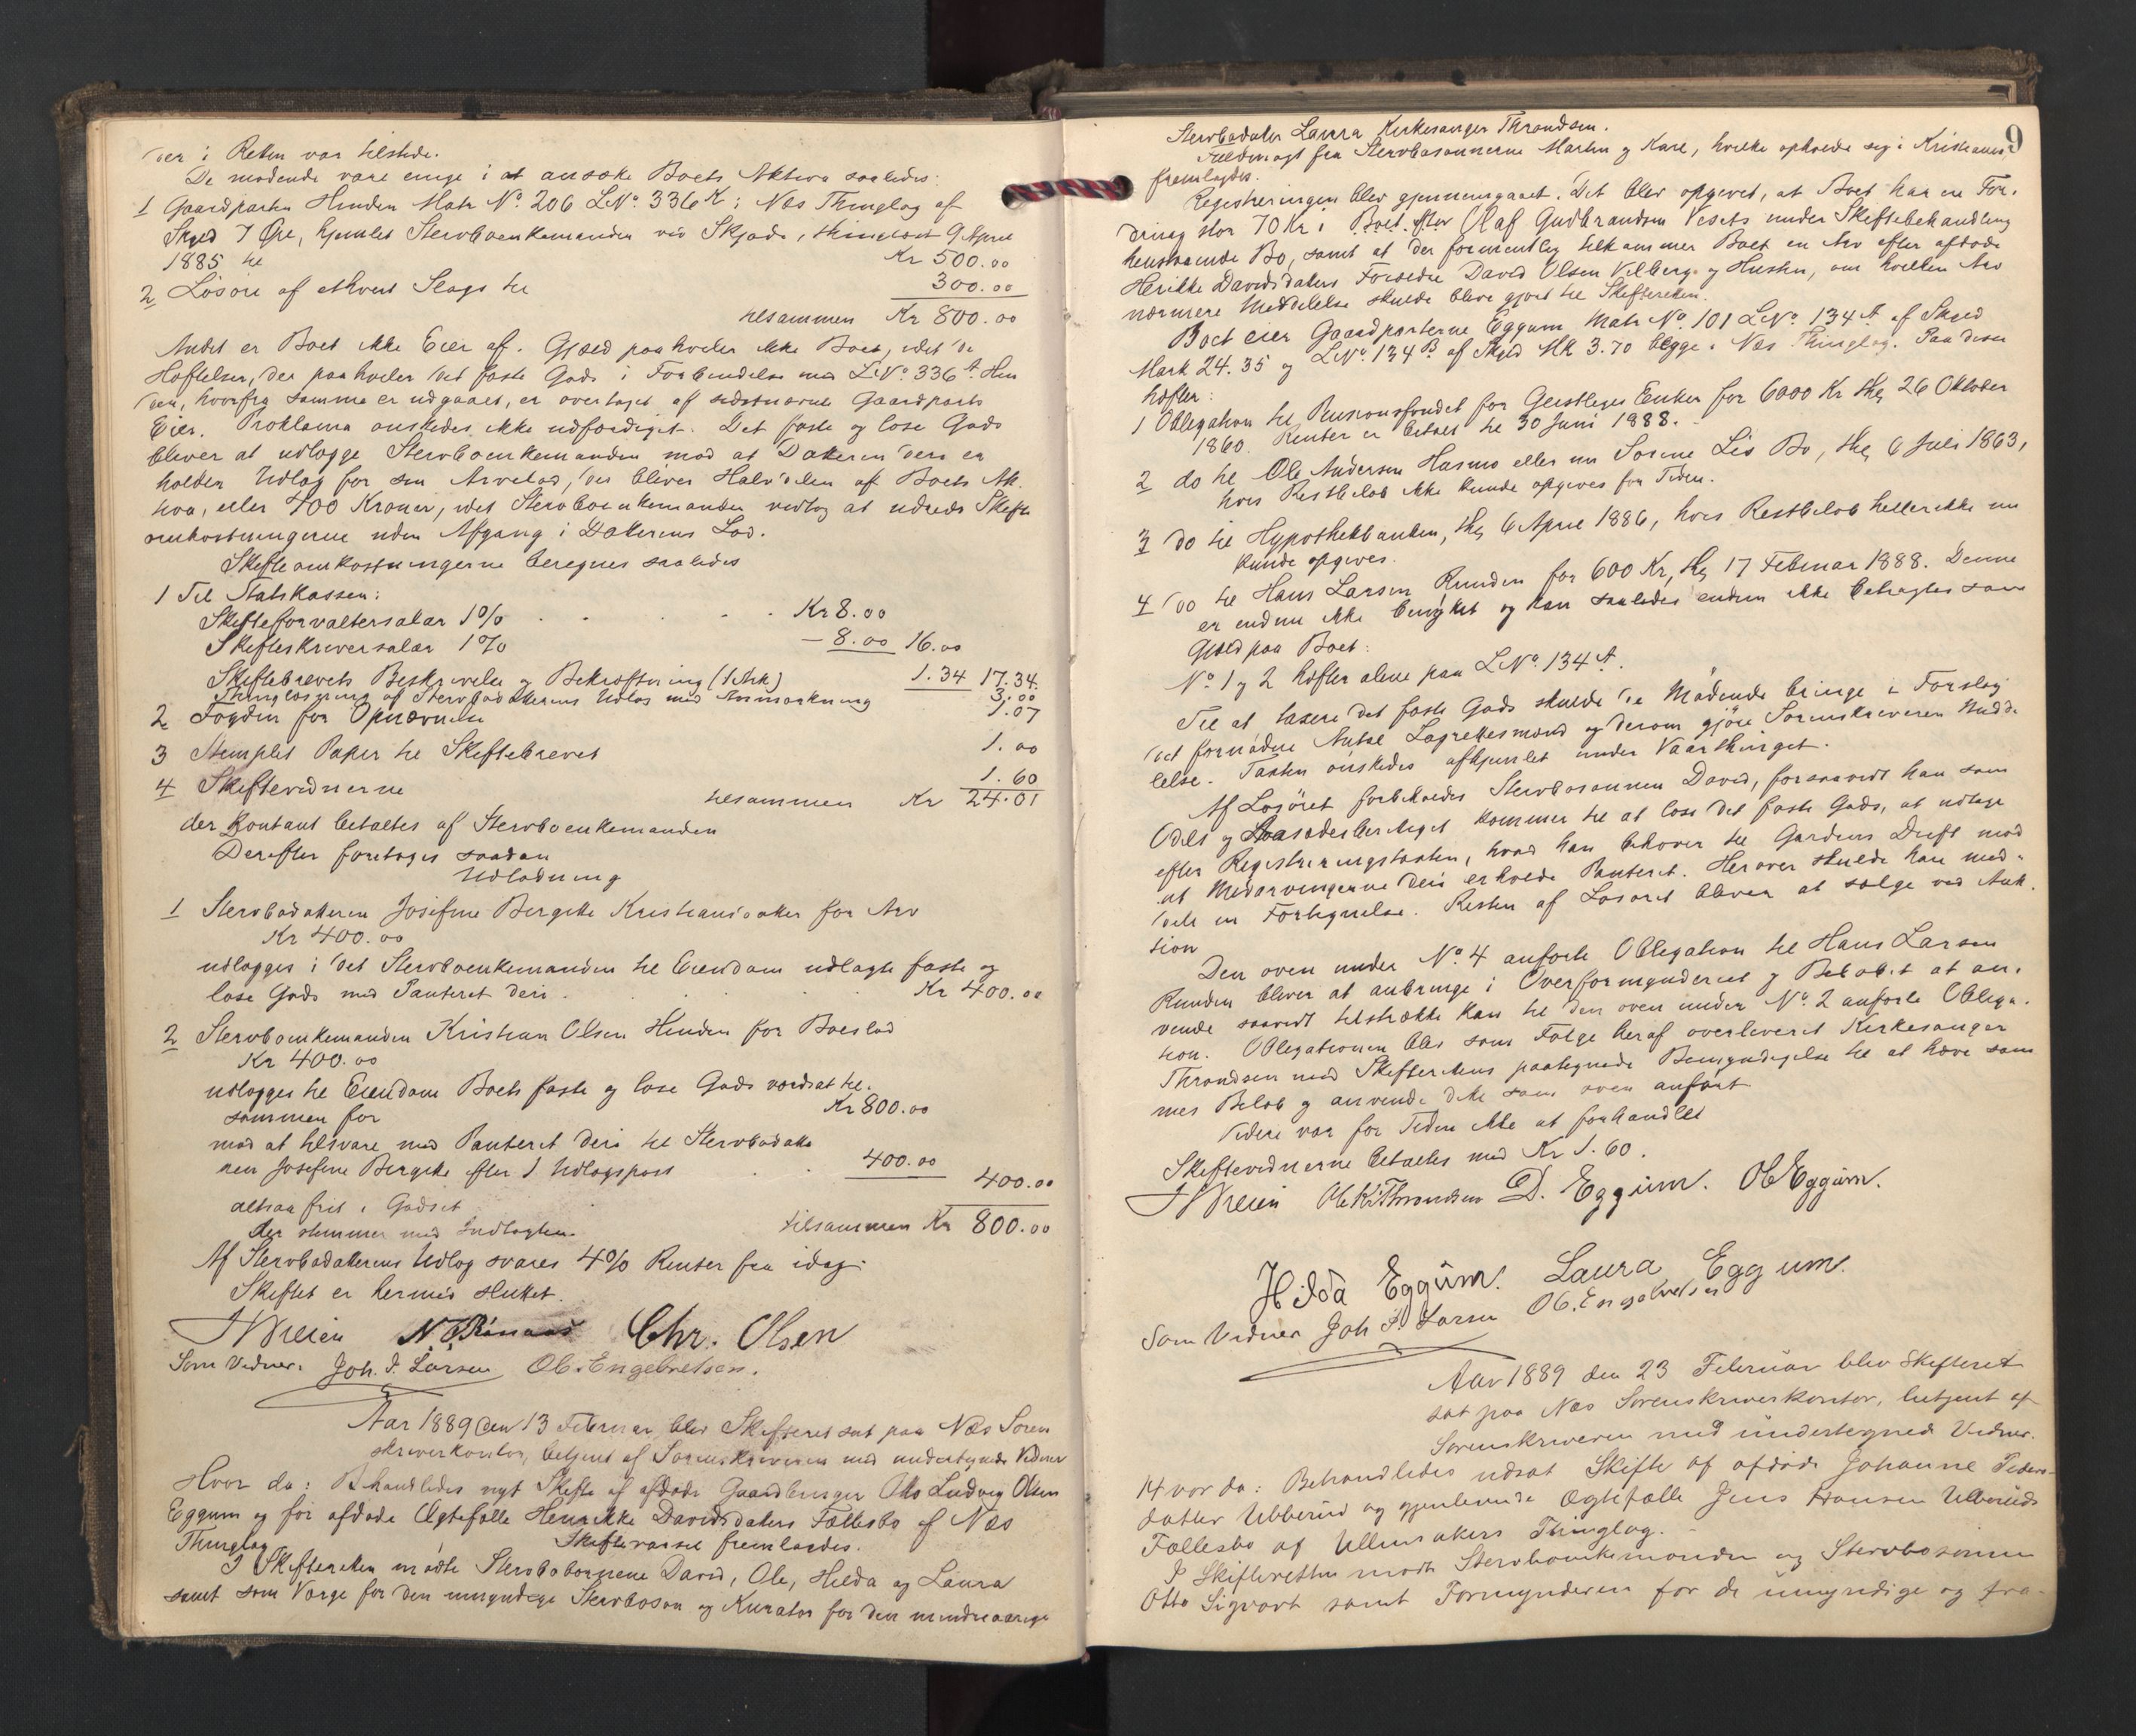 der i Retten var tilstede.
De mødende vare enige i at ansøke Boets Aktiva saaledes:
1 Gaardparten Hinden Matr No. 206 LNo. 336 K i Næs Thinglag af
Skyld 7 Øre, hjemlet Sterboenkemanden ved Skjøde, thinglæst 9 April
1885 til Kr 500.00
2 Løsøre af ethvert Slags til 300.00
tilsammen Kr 800.00
Andet er Boet ikke Eier af. Gjæld paahviler ikke Boet, idet de
Heftelser, der paahviler det faste Gods i Forbindelse med LNo. 336 A Hin
den, hvorfra samme er udgaaet, er overtaget af sidstnævnte Gaardparts
Eier. Proklama ønskedes ikke udfærdiget. Det faste og løse Gods
bliver at udlægge Sterboenkemanden mod at Datteren deri er
holder Udlæg for sin Arvelod, der bliver Halvdelen af Boets Ak
tiva, eller 400 Kroner, idet Sterboenkemanden vedtog at udrede Skifte
omkostningerne uden Afgang i Datterens Lod.
Skifteomkostningerne beregnes saaledes
1 Til Statskassen:
Skifteforvaltersalær 1% Kr 8.00
Skifteskriversalær 1% - 8.00 16.00
Skiftebrevets Beskrivelse og Bekræftning (1 Ark) 1.34 17.34
Thinglæsning af Sterbodatterens Udlæg med Anmærkning 3.00
2 Fogden for Opnævnelse 1.07
3 Stemplet Papir til Skiftebrevet 1.00
4 Skiftevidnerne 1.60
tilsammen Kr 24.01
der kontant betaltes af Sterboenkemanden
Derefter foretoges saadan
Udlodning
1 Sterbodatteren Josefine Bergitte Kristiansdatter for Arv
Kr 400.00
udlægges i det Sterboenkemanden til Eiendom udlagte faste og
løse Gods med Panteret deri Kr 400.00
2 Sterboenkemanden Kristian Olsen Hinden for Boeslod
Kr 400.00
udlægges til Eiendom Boets faste og løse Gods værdsat til-
sammen for Kr 800.00
mod at tilsvare med Panteret deri til Sterbodatte
ren Josefine Bergitte efter 1 Udlægspost 400.00
400.00
altsaa frit i Godset
der stemmer med Indtægten. tilsammen Kr 800.00
Af Sterbodatterens Udlæg svares 4% Renter fra idag.
Skiftet er hermed sluttet.
Chr. Olsen
Som Vidner: Joh. I. Larsen Ol. Engebretsen.
Aar 1889 den 13 Februar blev Skifteret sat paa Næs Soren
skriverkontor, betjent af Sorenskriveren med undertegnede Vidner
Hvor da: Behandledes nyt Skifte af afdøde Gaardbruger Otto Ludvig Olsen
Eggum og før afdøde Ægtefælle Henrikke Davidsdatters Fællesbo af Næs
Thinglag. Skiftevarsel fremlagdes.
I Skifteretten mødte Sterbobørnene David, Ole, Hilda og Laura
samt som Værge for den umyndige Sterbosøn og Kurator for den mindreaarige
9
Sterbodatter Laura Kirkesanger Throndsen.
Fuldmagt fra Sterbosønnerne Martin og Karl, hvilke opholde sig i Kristiania,
fremlagdes.
Registreringen blev gjennemgaaet. Det blev opgivet, at Boet har en For-
dring stor 70 Kr i Boet efter Olaf Gudbrandsen Vesets under Skiftebehandling
henstaaende Bo, samt at der formentlig tilkommer Boet en Arv efter afdøde
Henrikke Davidsdatters Forældre David Olsen Vilberg og Hustru, om hvilken Arv
nærmere Meddelelse skulde blive gjort til Skifteretten.
Boet eier Gaardparterne Eggum Matr No. 101 LNo. 134 A af Skyld
Mark 24.35 og LNo. 134 B af Skyld Mk 3.70 begge i Næs Thinglag. Paa disse
hæfter:
1 Obligation til Pensionsfondet for Geistliges Enker for 6000 Kr thg 26 Oktober
1860. Renter er betalt til 30 Juni 1888.
2 do til Ole Andersen Hasmo eller nu Sorine Lis Bo, thg 6 Juli 1863,
hvis Restbeløb ikke kunde opgives for Tiden.
3 do til Hypothekbanken, thg 6 April 1886, hvis Restbeløb heller ikke nu
kunde opgives.
4 do til Hans Larsen Runden for 600 Kr, thg 17 Februar 1888. Denne
er endnu ikke benyttet og kan saaledes endnu ikke betragtes som
Gjæld paa Boet.
No. 1 og 2 hæfter alene paa LNo. 134 A.
Til at taxere det faste Gods skulde de Mødende bringe i Forslag
det fornødne Antal Lagrettesmænd og derom gjøre Sorenskriveren Medde
lelse. Taxten ønskedes afhjemlet under Vaarthinget.
Af Løsøret forbeholdes Sterbosønnen David, forsaavidt han som
Odels og Aasædesberettiget kommer til at løse det faste Gods, at udtage
efter Registreringstaxten, hvad han behøver til Gaardens Drift mod
at Medarvingerne deri erholde Panteret. Herover skulde han med-
dele en Fortegnelse. Resten af Løsøret bliver at sælge ved Auk-
tion
Den oven under No. 4 anførte Obligation til Hans Larsen
Runden bliver at anbringe i Overformynderiet og Beløbet at an-
vende saavidt tilstrække kan til den oven under No. 2 anførte Obliga-
tion. Obligationen blev som Følge heraf overleveret Kirkesanger
Throndsen med Skifterettens paategnede Bemyndigelse til at hæve sam
mes Beløb og anvende dette som oven anført
Videre var for Tiden ikke at forhandle
Skiftevidnerne betaltes med Kr 1.60.
Ole K. Throndsen D. Eggum. Ol Eggum.
Hilda Eggum. Laura Eggum.
Som Vidner Joh I. Larsen Ol. Engebretsen
Aar 1889 den 23 Februar blev Skifteret
sat paa Næs Sorenskriverkontor, betjent af
Sorenskriveren med undertegnede Vidner.
Hvor da: Behandledes udsat Skifte af afdøde Johanne Peders-
datter Ubberud og gjenlevende Ægtefælle Jens Hansen Ubberuds
Fællesbo af Ullensakers Thinglag.
I Skifteretten mødte Sterboenkemanden og Sterbosønnen
Otto Sigvart samt Formynderen for de umyndige og fra-